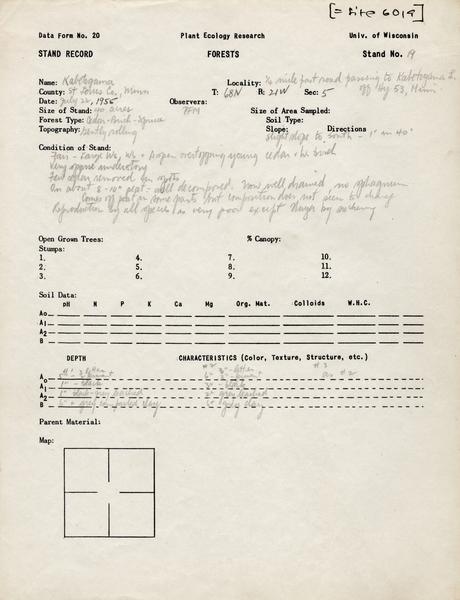 [= Site 6019]
Data Form No. 20 Plant Ecology Research Univ. of Wisconsin
STAND RECORD FORESTS Stand No. 19
Name: Kabetogama Locality: ½ mile past road passing to Kabetogama L.
County: St Louis Co, Minn T: 68N R: 21W Sec: 5 off Hwy 53, Minn.
Date: July 26, 1956 Observers:
Size of Stand: 40 acres Size of Area Sampled:
Forest Type: Cedar-Birch-Spruce Soil Type:
Topography: Gently rolling Slope: Directions
slight slope to south - 1" in 40'
Condition of Stand:
Fair - Large + Aspen overtopping young cedar
Very sparse understory
Few cedar removed in spots
On about 8-10" peat - well decomposed. Now well drained, no sphagnum
some parts but composition does not seem to change
Reproduction by all species is very poor except by
Open Grown Trees: % Canopy:
Stumps:
1. 4. 7. 10.
2. 5. 8. 11.
3. 6. 9. 12.
Soil Data:
pH N P K Ca Mg Org. Mat. Colloids W.H.C.
Ao
A1
A2
B
DEPTH CHARACTERISTICS (Color, Texture, Structure, etc.)
#2 #3
Ao #1 litter litter as #2
A1 black
A2 leached grey leached
B grey clay clay
Parent Material:
Map: